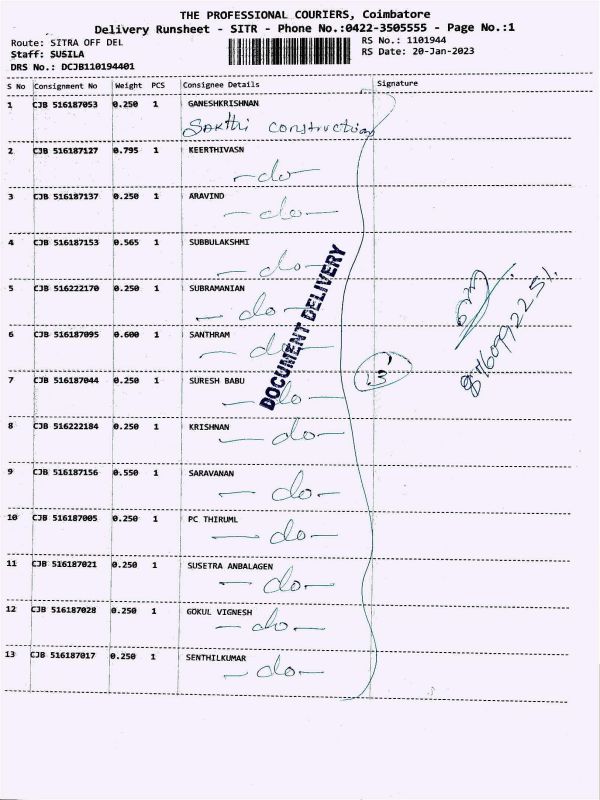 THE PROFESSIONAL COURIERS, Coimbatore
Delivery Runsheet - SITR - Phone No.:0422-3505555 - Page No.:1
Route: SITRA OFF DEL
RS No.: 1101944
Staff: SUSILA
RS Date: 20-Jan-2023
DRS No.: DCJB110194401
S No Consignment No Weight PCS Consignee Details Signature
1 CJB 516187053 0.250 1 GANESHKRISHNAN
Sakthi construction
2 CJB 516187127 0.795 1 KEERTHIVASN
—do—
3 CJB 516187137 0.250 1 ARAVIND
—do—
4 CJB 516187153 0.565 1 SUBBULAKSHMI
—do—
5 CJB 516222170 0.250 1 SUBRAMANIAN
—do—
6 CJB 516187095 0.600 1 SANTHRAM
—do—
7 CJB 516187044 0.250 1 SURESH BABU
—do—
DOCUMENT DELIVERY
13
8 CJB 516222184 0.250 1 KRISHNAN
—do—
9 CJB 516187156 0.550 1 SARAVANAN
—do—
10 CJB 516187005 0.250 1 PC THIRUML
—do—
11 CJB 516187021 0.250 1 SUSETRA ANBALAGEN
—do—
12 CJB 516187028 0.250 1 GOKUL VIGNESH
—do—
13 CJB 516187017 0.250 1 SENTHILKUMAR
—do—